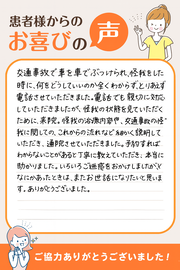 患者様からの
お喜びの
声
交通事故で車を車でぶつけられ、怪我をした
時に、何をどうしていいのか全くわからず、とりあえず
電話させていただきました。電話でも親切に対応
していただきましたが、怪我の状態を見ていただく
ために、来院。怪我の治療内容や、交通事故の怪
我に関しての、これからの流れなど細かく説明して
いただき、通院させていただきました。予約すれば
わからないことがあると丁寧に教えていただき、本当に
助かりました。いろいろご迷惑をおかけしましたが、
なにかあったときは、またお世話になりたいと思いま
す。ありがとうございました。
ご協力ありがとうございました!